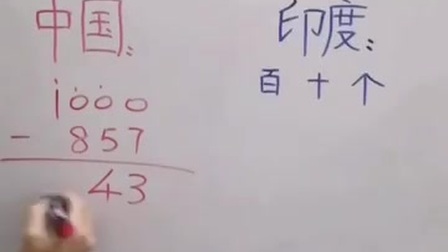 中国：
1000
- 857
43
印度：
百 十 个